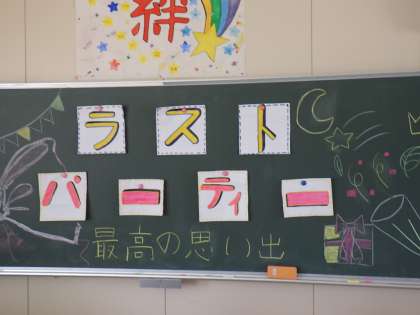 絆
ラスト
パーティー
最高の思い出